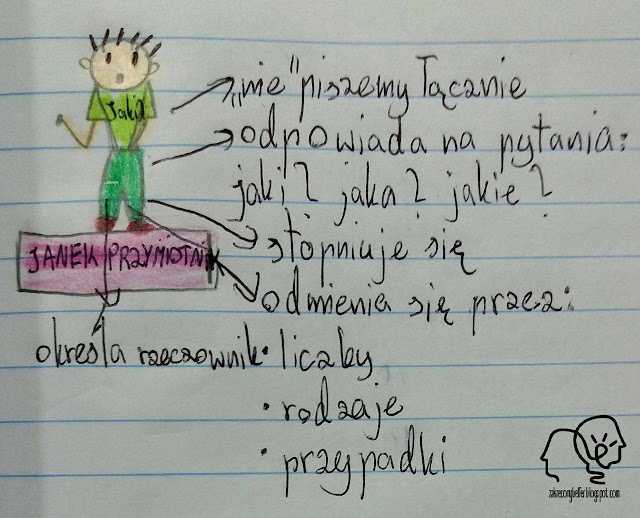 Jaki?
„nie" piszemy łącznie
odpowiada na pytania:
jaki? jaka? jakie?
stopniuje się
JANEK PRZYMIOTNIK
odmienia się przez:
określa rzeczownik
• liczby
• rodzaje
• przypadki
zakreconybelfer.blogspot.com